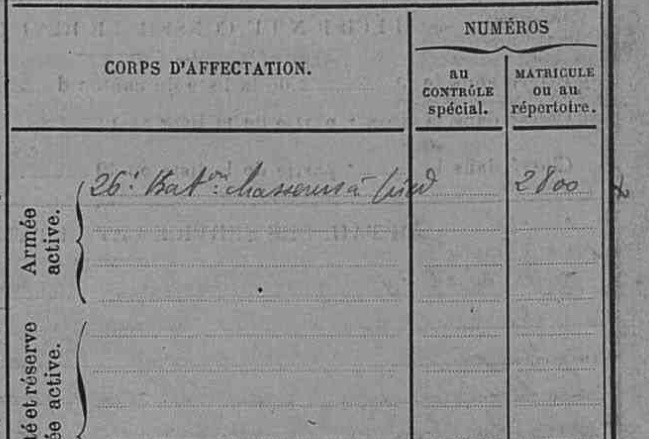 NUMÉROS
CORPS D'AFFECTATION.
au
CONTRÔLE
spécial.
MATRICULE
ou au
répertoire.
26e Baton Chasseurs à pied
2800
Armée
active.
té et réserve
ée active.